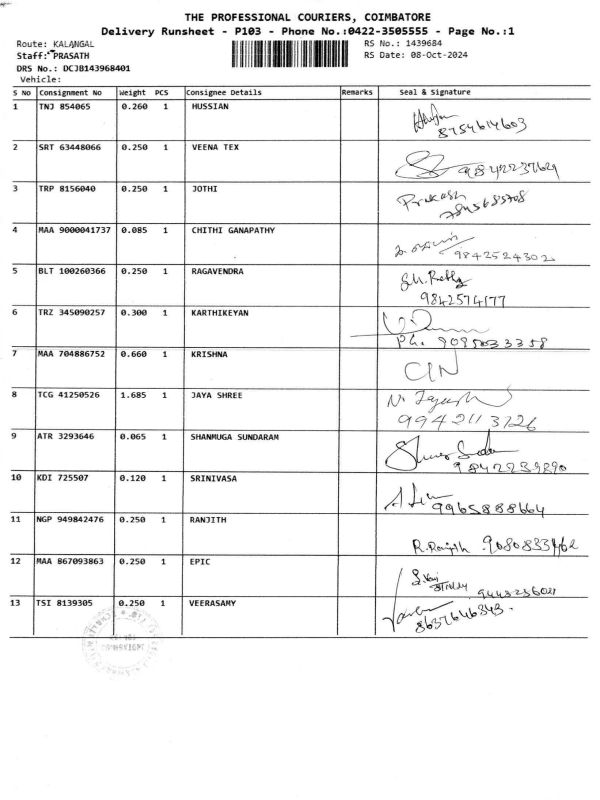 THE PROFESSIONAL COURIERS, COIMBATORE
Delivery Runsheet - P103 - Phone No.:0422-3505555 - Page No.:1
Route: KALANGAL
RS No.: 1439684
Staff: PRASATH
RS Date: 08-Oct-2024
DRS No.: DCJB143968401
Vehicle:
S No Consignment No Weight PCS Consignee Details Remarks Seal & Signature
1 TNJ 854065 0.260 1 HUSSIAN
8754614603
2 SRT 63448066 0.250 1 VEENA TEX
9842237629
3 TRP 8156040 0.250 1 JOTHI
Prakash
4 MAA 9000041737 0.085 1 CHITHI GANAPATHY
9842524302
5 BLT 100260366 0.250 1 RAGAVENDRA
9842574177
6 TRZ 345090257 0.300 1 KARTHIKEYAN
Ph. 9095033358
7 MAA 704886752 0.660 1 KRISHNA
8 TCG 41250526 1.685 1 JAYA SHREE
9942113726
9 ATR 3293646 0.065 1 SHANMUGA SUNDARAM
9842239290
10 KDI 725507 0.120 1 SRINIVASA
9965888664
11 NGP 949842476 0.250 1 RANJITH
R. Ranjith 9080833462
12 MAA 867093863 0.250 1 EPIC
9443256021
13 TSI 8139305 0.250 1 VEERASAMY
8637646343.